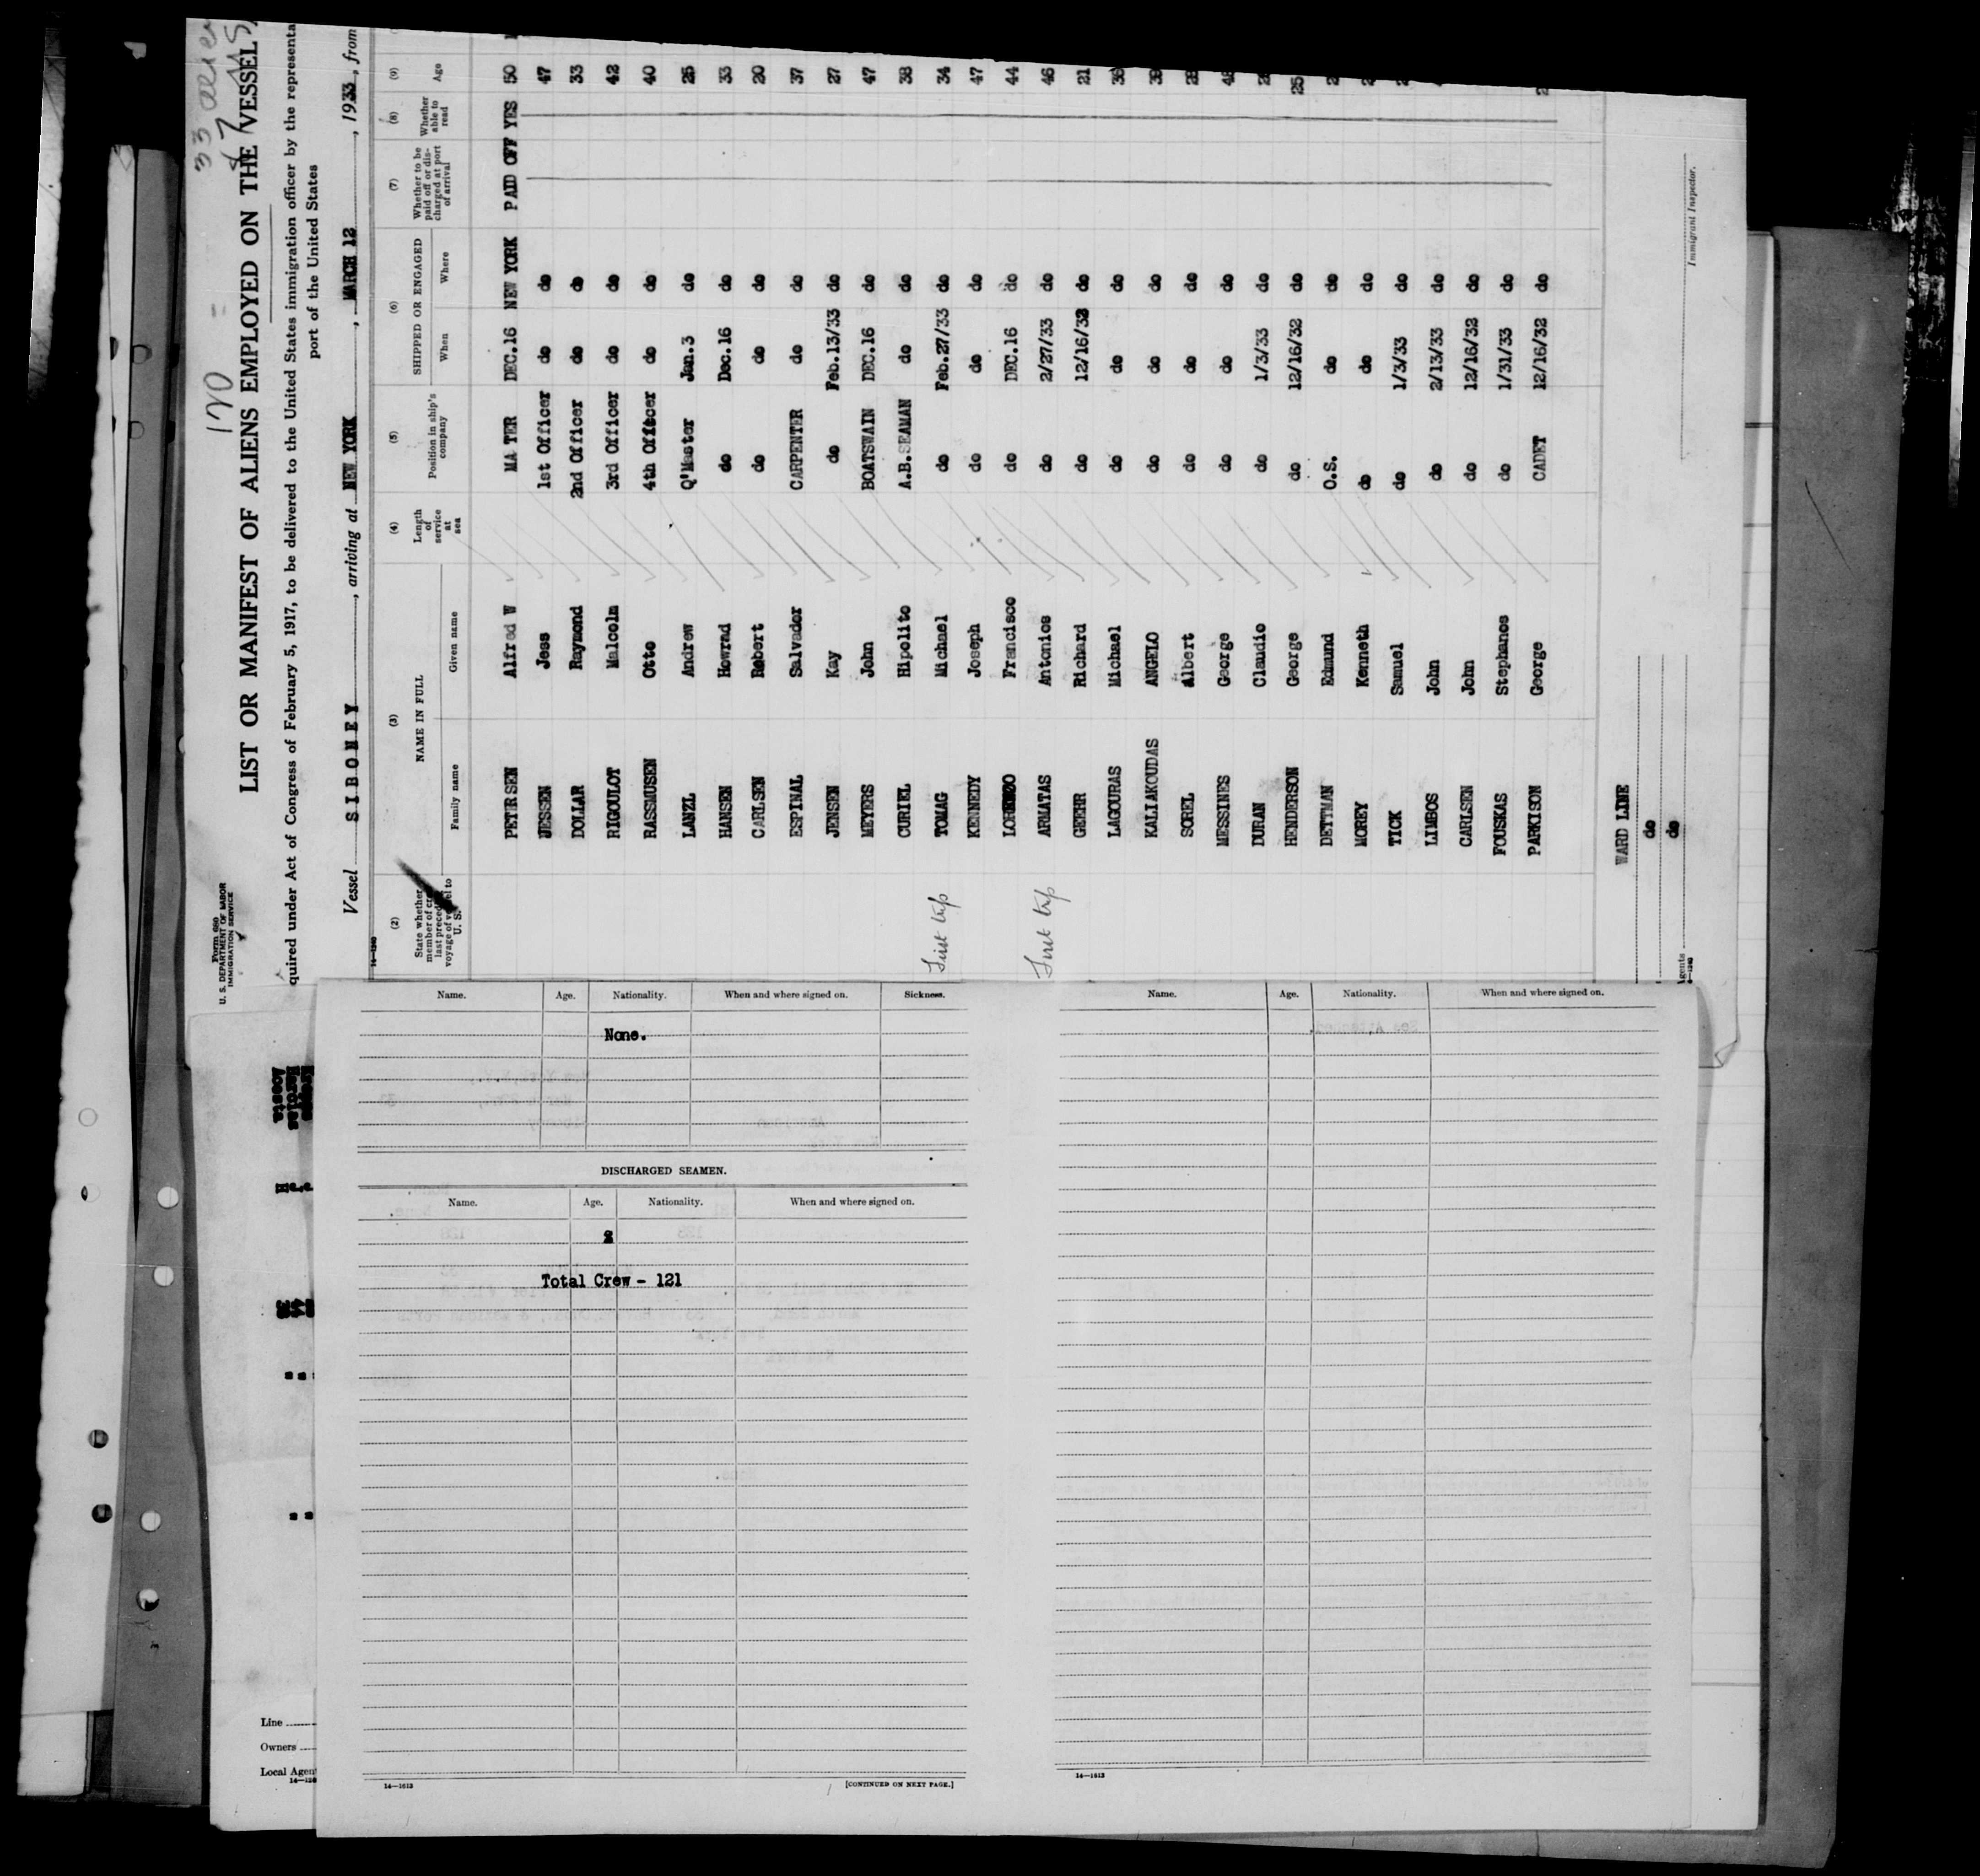 Form 680
U. S. DEPARTMENT OF LABOR
IMMIGRATION SERVICE
170 =
33 aliens
LIST OR MANIFEST OF ALIENS EMPLOYED ON THE VESSEL
quired under Act of Congress of February 5, 1917, to be delivered to the United States immigration officer by the representa
port of the United States
Vessel SIBONEY, arriving at NEW YORK, MARCH 12, 1933, from
14-1240
(2) (3) (4) (5) (6) (7) (8) (9)
State whether member of crew last preceding voyage of vessel to U. S. NAME IN FULL Family name Given name Length of service at sea Position in ship's company SHIPPED OR ENGAGED When Where Whether to be paid off or discharged at port of arrival Whether able to read Age
PETERSEN Alfred W MA TER DEC.16 NEW YORK PAID OFF YES 50
JESSEN Jess 1st Officer do do 47
DOLLAR Raymond 2nd Officer do do 33
RIGOULOT Malcolm 3rd Officer do do 42
RASMUSEN Otto 4th Officer do do 40
LANZL Andrew Q'Master Jan.3 do 25
HANSEN Howrad do Dec.16 do 33
CARLSEN Robert do do do 20
ESPINAL Salvador CARPENTER do do 37
JENSEN Kay do Feb.13/33 do 27
MEYERS John BOATSWAIN DEC.16 do 47
CURIEL Hipolito A.B.SEAMAN do do 38
First trip TOMAG Michael do Feb.27/33 do 34
KENNEDY Joseph do do do 47
LORENZO Francisco do DEC.16 do 44
First trip ARMATAS Antonios do 2/27/33 do 46
GEEHR Richard do 12/16/32 do 21
LAGOURAS Michael do do do
KALIAKOUDAS ANGELO do do do
SOREL Albert do do do
MESSINES George do do do
DURAN Claudio do 1/3/33 do
HENDERSON George do 12/16/32 do 25
DETTMAN Edmund O.S. do do
MOREY Kenneth do do do
TICK Samuel do 1/3/33 do
LIMBOS John do 2/13/33 do
CARLSEN John do 12/16/32 do
FOUSKAS Stephanos do 1/31/33 do
PARKISON George CADET 12/16/32 do
WARD LINE
do
do
Immigrant Inspector.
Name. Age. Nationality. When and where signed on. Sickness.
None.
DISCHARGED SEAMEN.
Name. Age. Nationality. When and where signed on.
Total Crew - 121
14-1613
[CONTINUED ON NEXT PAGE.]
Name. Age. Nationality. When and where signed on.
14-1613
Acosta
Line
Owners
Local Agen